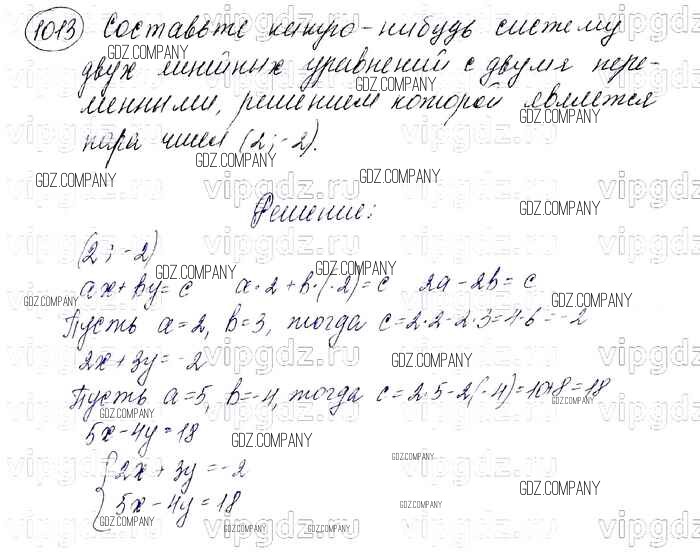 1013 Составьте какую-нибудь систему
двух линейных уравнений с двумя пере-
менными, решением которой является
пара чисел (2; -2).
Решение:
(2; -2)
ax + by = c a·2 + b·(-2) = c 2a - 2b = c
Пусть a=2, b=3, тогда c=2·2-2·3=4-6=-2
2x + 3y = -2
Пусть a=5, b=-4, тогда c=2·5-2(-4)=10+8=18
5x - 4y = 18
{ 2x + 3y = -2
5x - 4y = 18
vipgdz.ru
GDZ.COMPANY